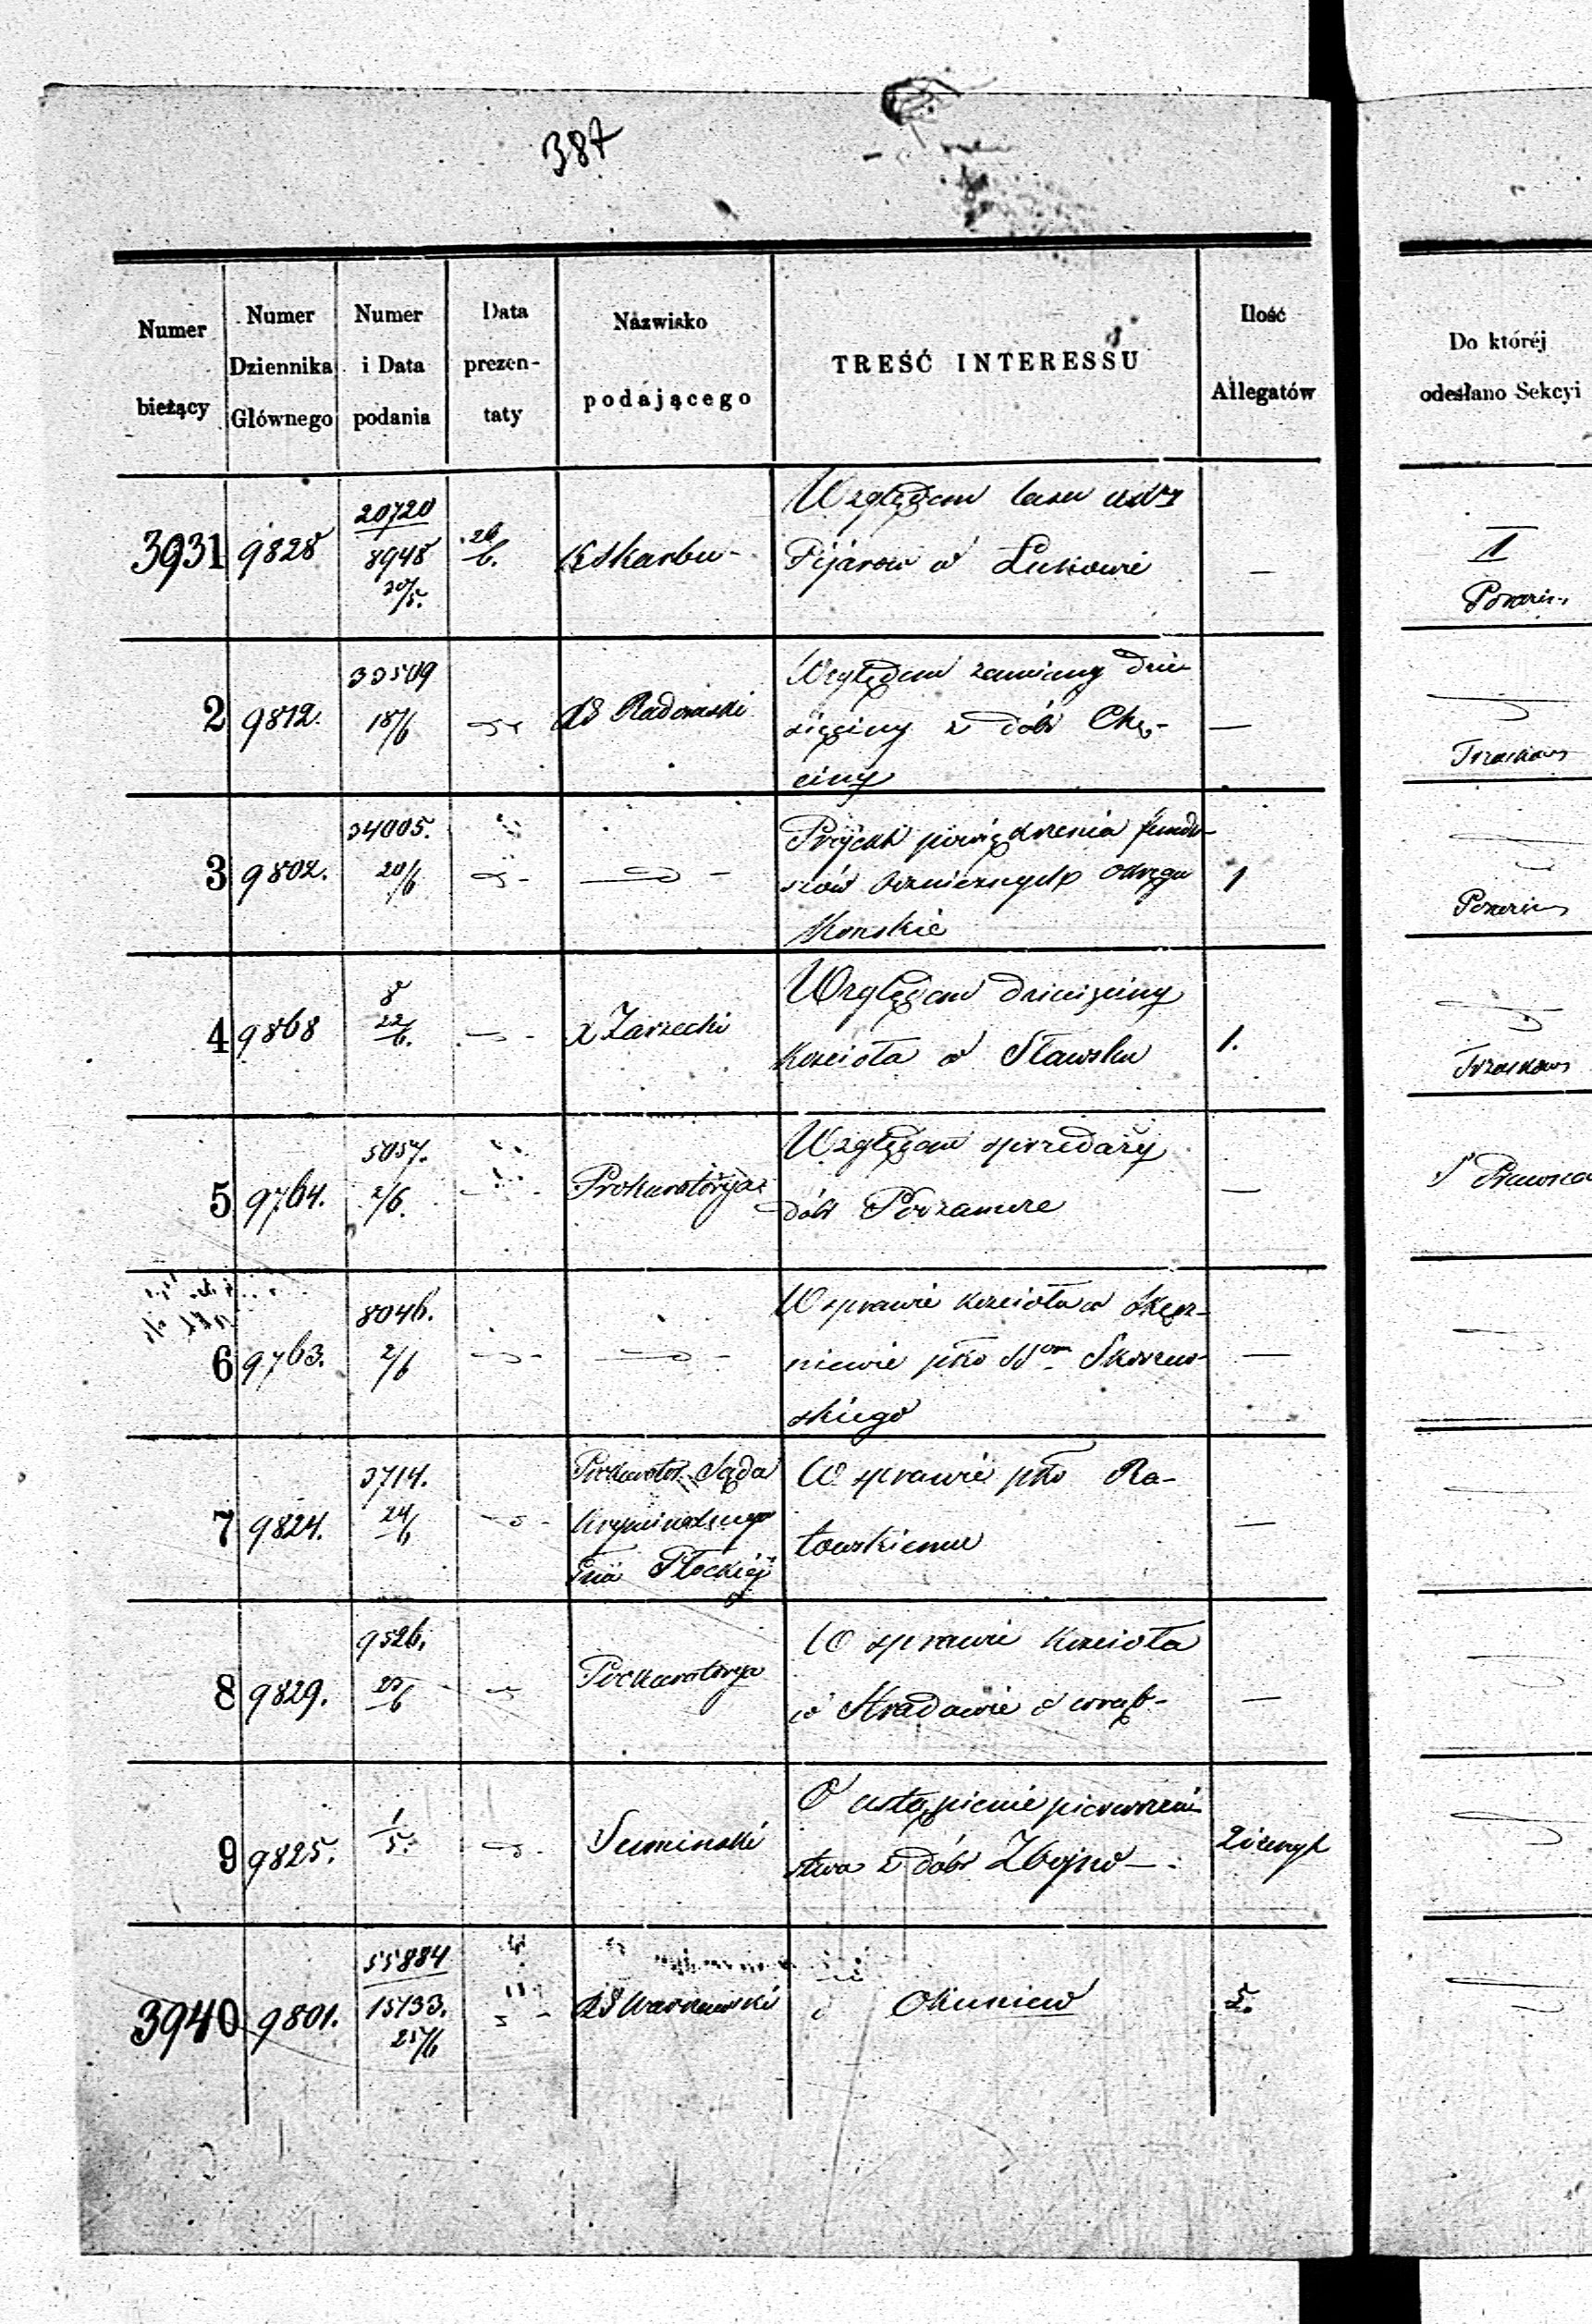 387
Numer bieżący | Numer Dziennika Głównego | Numer i Data podania | Data prezentaty | Nazwisko podającego | TREŚĆ INTERESSU | Ilość Allegatów | Do któréj odesłano Sekcyi
3931 | 9828 | 20720 8948 20/5. | 26/6. | K Skarbu | Względem lasu
Pijarów w Łukowie | — | II
2 | 9812. | 33509 18/6 | RG Radomski | Względem zamiany dzie
sięciny z dóbr Chę-
ciny | —
3 | 9802. | 34005. 20/6 | Projekt powiększenia fundu-
szów bożniczych okręgu
Konskie | 1
4 | 9868 | 8 22/6. | X Zarzecki | Względem dziesięciny
Kościoła w Sławsku | 1.
5 | 9764. | 5057. 2/6. | Prokuratorya | Względem sprzedaży
dóbr Podzamcze | —
6 | 9763. | 8046. 2/6 | W sprawie kościoła w
niewie pko SSom Skorzew-
skiego | —
7 | 9824. | 3714. 24/6 | Prokurator Sądu
Kryminalnego
Płockiéj | W sprawie pko Ra-
towskiemu | —
8 | 9829. | 9526. 25/6 | Prokuratorya | W sprawie Kościoła
w Stradowie o wrąb | —
9 | 9825. | 1/5. | Suminski | O ustąpienie pierwszeń
stwa z dóbr Zbojno
3940 | 9801. | 55884 15133. 25/6 | RG Warszawski | Okuniew | 5.